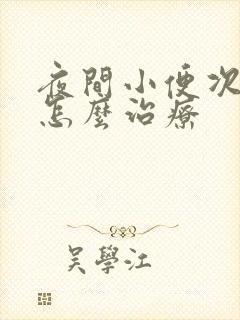 夜間小便次
怎麼治療
吳學江